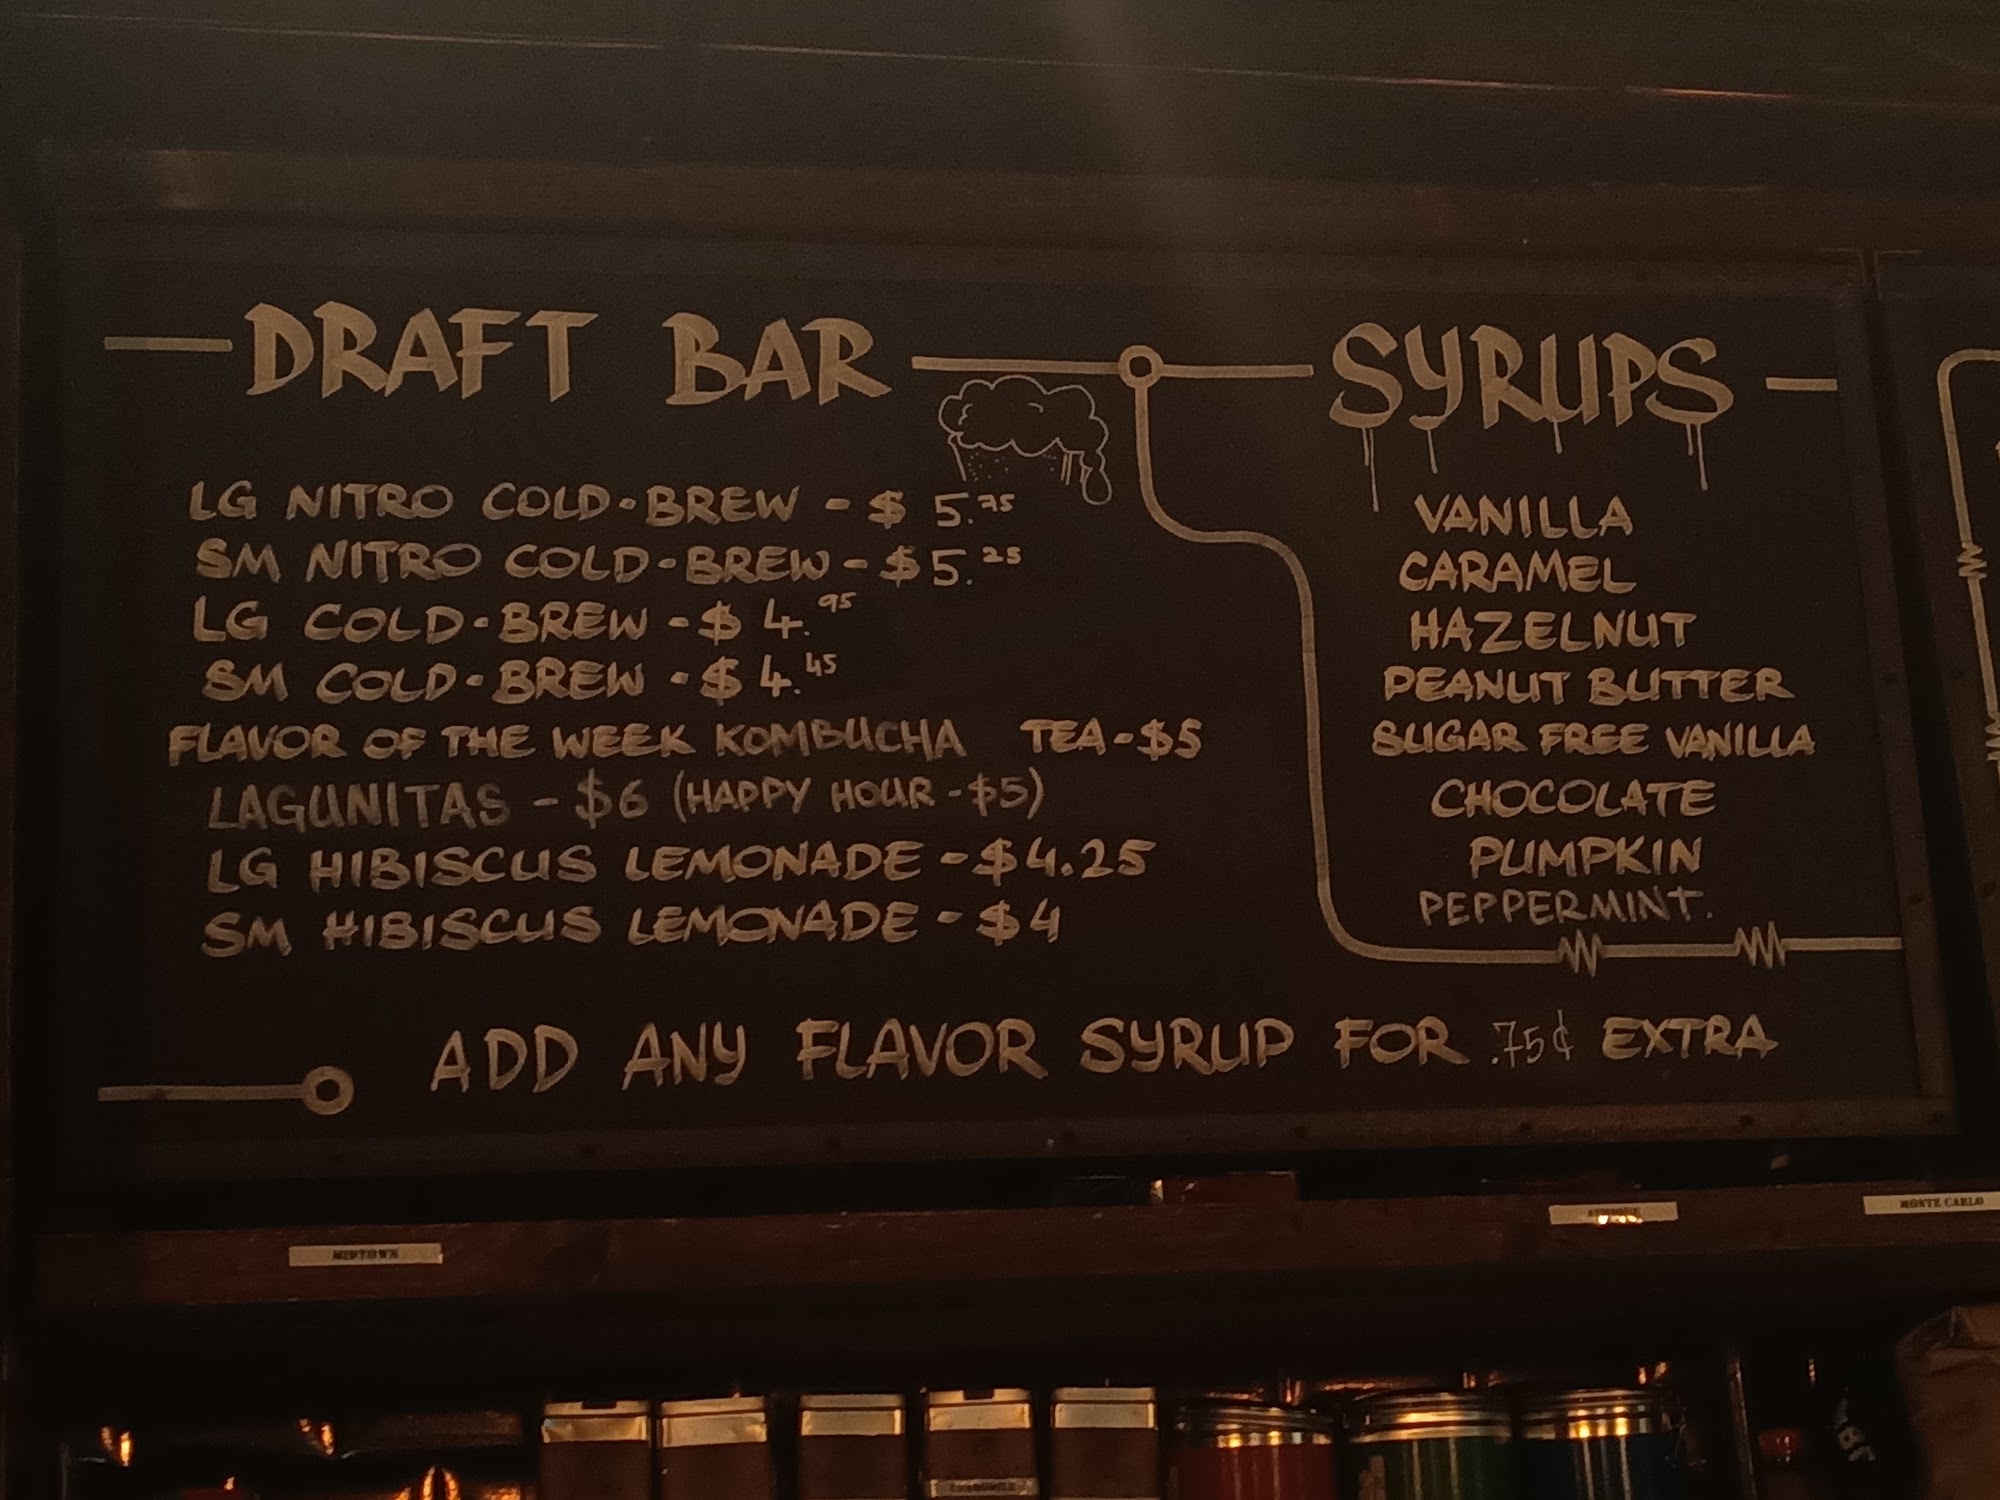 DRAFT BAR
LG NITRO COLD-BREW - $ 5.75
SM NITRO COLD-BREW - $5.25
LG COLD-BREW - $ 4.95
SM COLD-BREW - $ 4.45
FLAVOR OF THE WEEK KOMBUCHA TEA-$5
LAGUNITAS - $6 (HAPPY HOUR - $5)
LG HIBISCUS LEMONADE - $4.25
SM HIBISCUS LEMONADE - $4
SYRUPS
VANILLA
CARAMEL
HAZELNUT
PEANUT BUTTER
SUGAR FREE VANILLA
CHOCOLATE
PUMPKIN
PEPPERMINT.
ADD ANY FLAVOR SYRUP FOR .75¢ EXTRA
MIDTOWN
MONTE CARLO